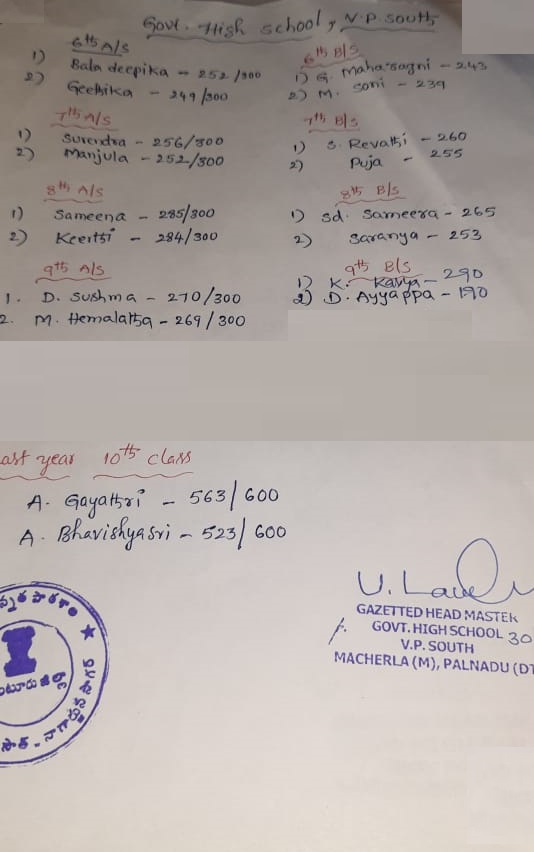 Govt. High school, V.P. South
6th A/S
1) Bala deepika - 252/300
2) Geethika - 249/300
6th B/S
1) G. Maharagni - 243
2) M. Soni - 239
7th A/S
1) Surendra - 256/300
2) Manjula - 252/300
7th B/S
1) S. Revathi - 260
2) Puja - 255
8th A/S
1) Sameena - 285/300
2) Keerthi - 284/300
8th B/S
1) Sd. Sameera - 265
2) Saranya - 253
9th A/S
1. D. Sushma - 270/300
2. M. Hemalatha - 269/300
9th B/S
1) K. Kavya - 290
2) D. Ayyappa - 190
ast year 10th class
A. Gayathri - 563/600
A. Bhavishyasri - 523/600
GAZETTED HEAD MASTER
GOVT. HIGH SCHOOL 30
V.P. SOUTH
MACHERLA (M), PALNADU (DT